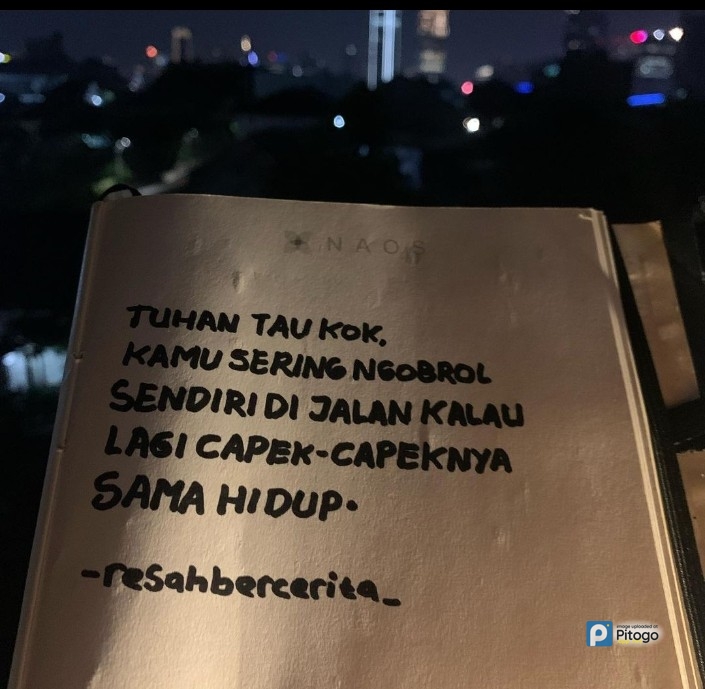 NAOS
TUHAN TAU KOK.
KAMU SERING NGOBROL
SENDIRI DI JALAN KALAU
LAGI CAPEK-CAPEKNYA
SAMA HIDUP.
-resahbercerita_
image uploaded on
Pitogo